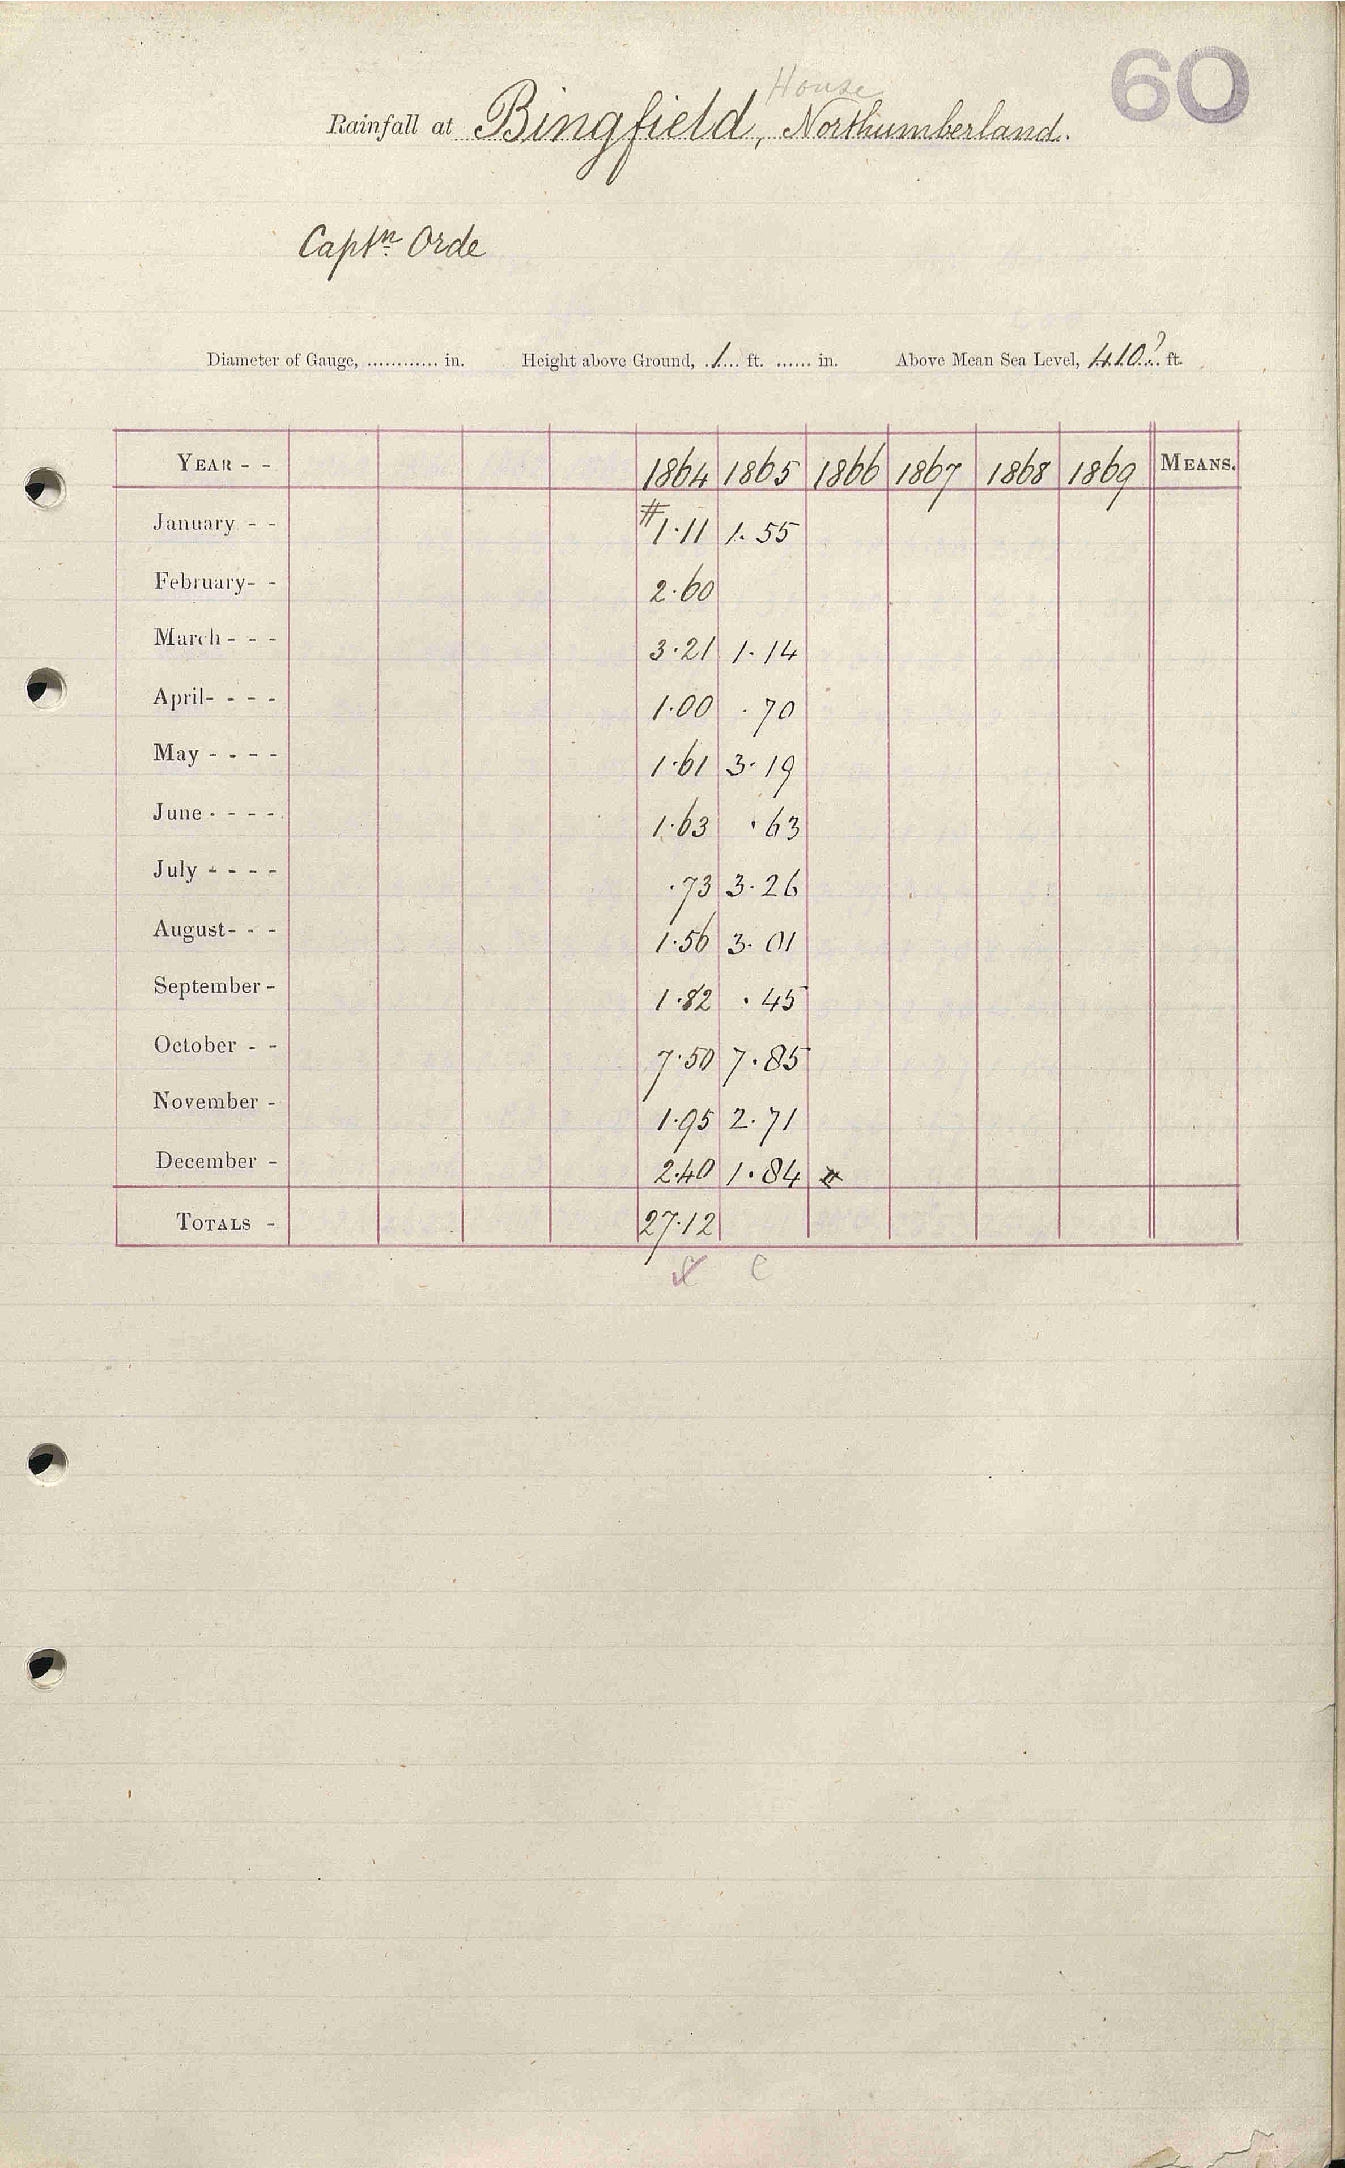 60
House
Rainfall at Bingfield, Northumberland.
Capt<sup>n</sup>. Orde
Diameter of Gauge, ............ in. Height above Ground, 1 ft. ...... in. Above Mean Sea Level, 410? ft.
YEAR - - 1864 1865 1866 1867 1868 1869 MEANS.
January - - #1.11 1.55
February- - 2.60
March - - - 3.21 1.14
April- - - - 1.00 .70
May - - - - 1.61 3.19
June - - - - 1.63 .63
July - - - - .73 3.26
August- - - 1.56 3.01
September - 1.82 .45
October - - 7.50 7.85
November - 1.95 2.71
December - 2.40 1.84 #
TOTALS - 27.12
C C